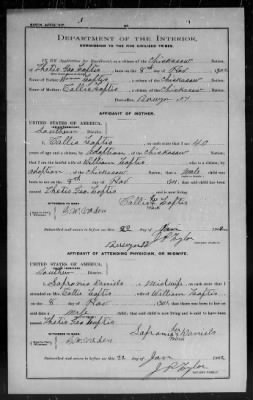 DEPARTMENT OF THE INTERIOR,
COMMISSION TO THE FIVE CIVILIZED TRIBES.
IN RE Application for Enrollment, as a citizen of the Chickasaw Nation,
of Thetis Leo Loftis, born on the 8th day of Nov, 190
Name of Father: William Loftis a citizen of the Chickasaw Nation.
Name of Mother: Callie Loftis a citizen of the Chickasaw Nation.
Post-office, Berwyn I.T.
AFFIDAVIT OF MOTHER.
UNITED STATES OF AMERICA,
Southern District.
I, Callie Loftis, on oath state that I am 40
years of age and a citizen, by adoption, of the Chickasaw Nation;
that I am the lawful wife of William Loftis, who is a citizen, by
adoption of the Chickasaw Nation; that a male child was
born to me on 8th day of Nov, 1901, that said child has been
named Thetis Leo Loftis, and is now living.
Callie Loftis
her
mark
Subscribed and sworn to before me this 22 day of Jan 1902
J P Taylor
NOTARY PUBLIC.
AFFIDAVIT OF ATTENDING PHYSICIAN, OR MIDWIFE.
UNITED STATES OF AMERICA,
Southern District.
I, Safronia Daniels, a Midwife, on oath state that I
attended on Mrs. Callie Loftis, wife of William Loftis
on the 8 day of Nov, 1901, that there was born to her on said date a
male child; that said child is now living and is said to have been
named Thetis Leo Loftis
Safronia Daniels
her
mark
Subscribed and sworn to before me this 22 day of Jan 1902
J P Taylor
NOTARY PUBLIC.